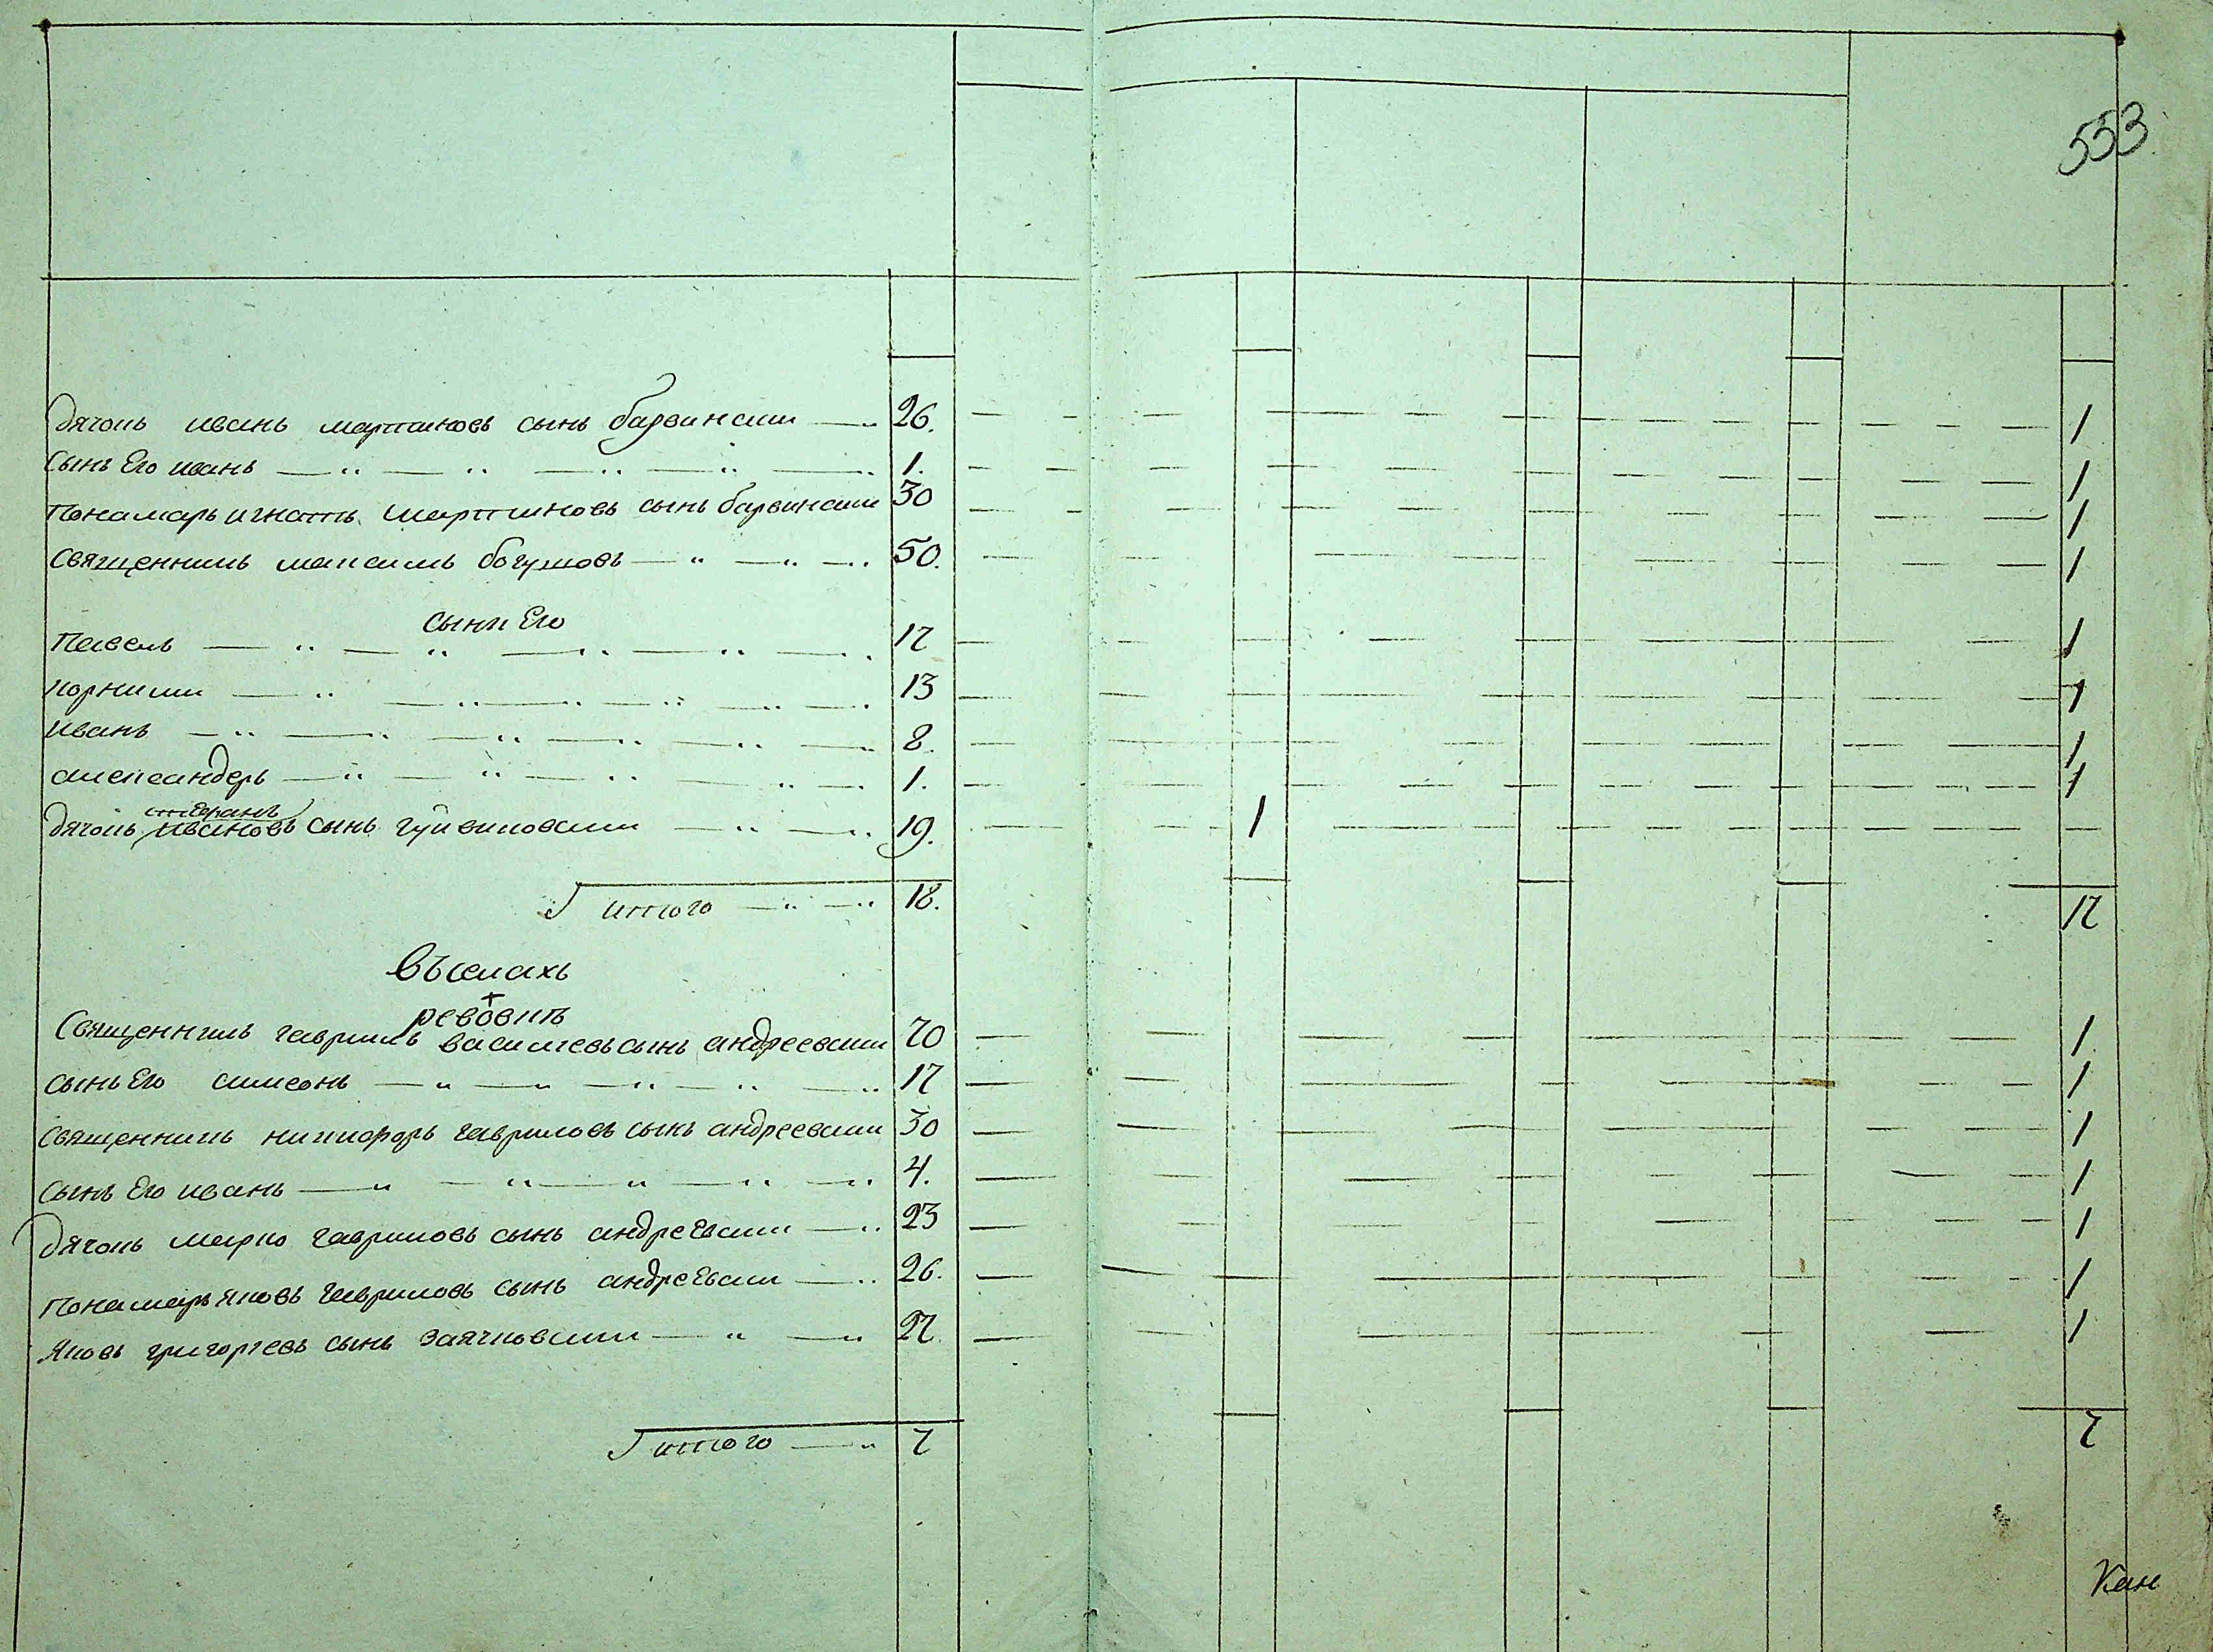 553
дячокъ иванъ мартиновъ сынъ барвински 26. 1
сынъ Его иванъ 1. 1
понамарь игнатъ мартиновъ сынъ барвински 30 1
священникъ максимъ богушовъ 50. 1
сыни Его
павелъ 17 1
корнили 13 1
иванъ 8. 1
александеръ 1. 1
стефанъ
дячокъ ивановъ сынъ 19. 1
итого 18. 17
въ селахъ
ревовкъ
Священникъ гаврилъ василіевъ сынъ андреевски 70 1
сынъ Его симеонъ 17 1
священникъ никифоръ гавриловъ сынъ андреевски 30 1
сынъ Его иванъ 4. 1
дячокъ марко гавриловъ сынъ андреЕвски 23 1
понамарь яковъ гавриловъ сынъ андреЕвски 26. 1
яковъ григоріевъ сынъ заячковски 27. 1
итого 7 7